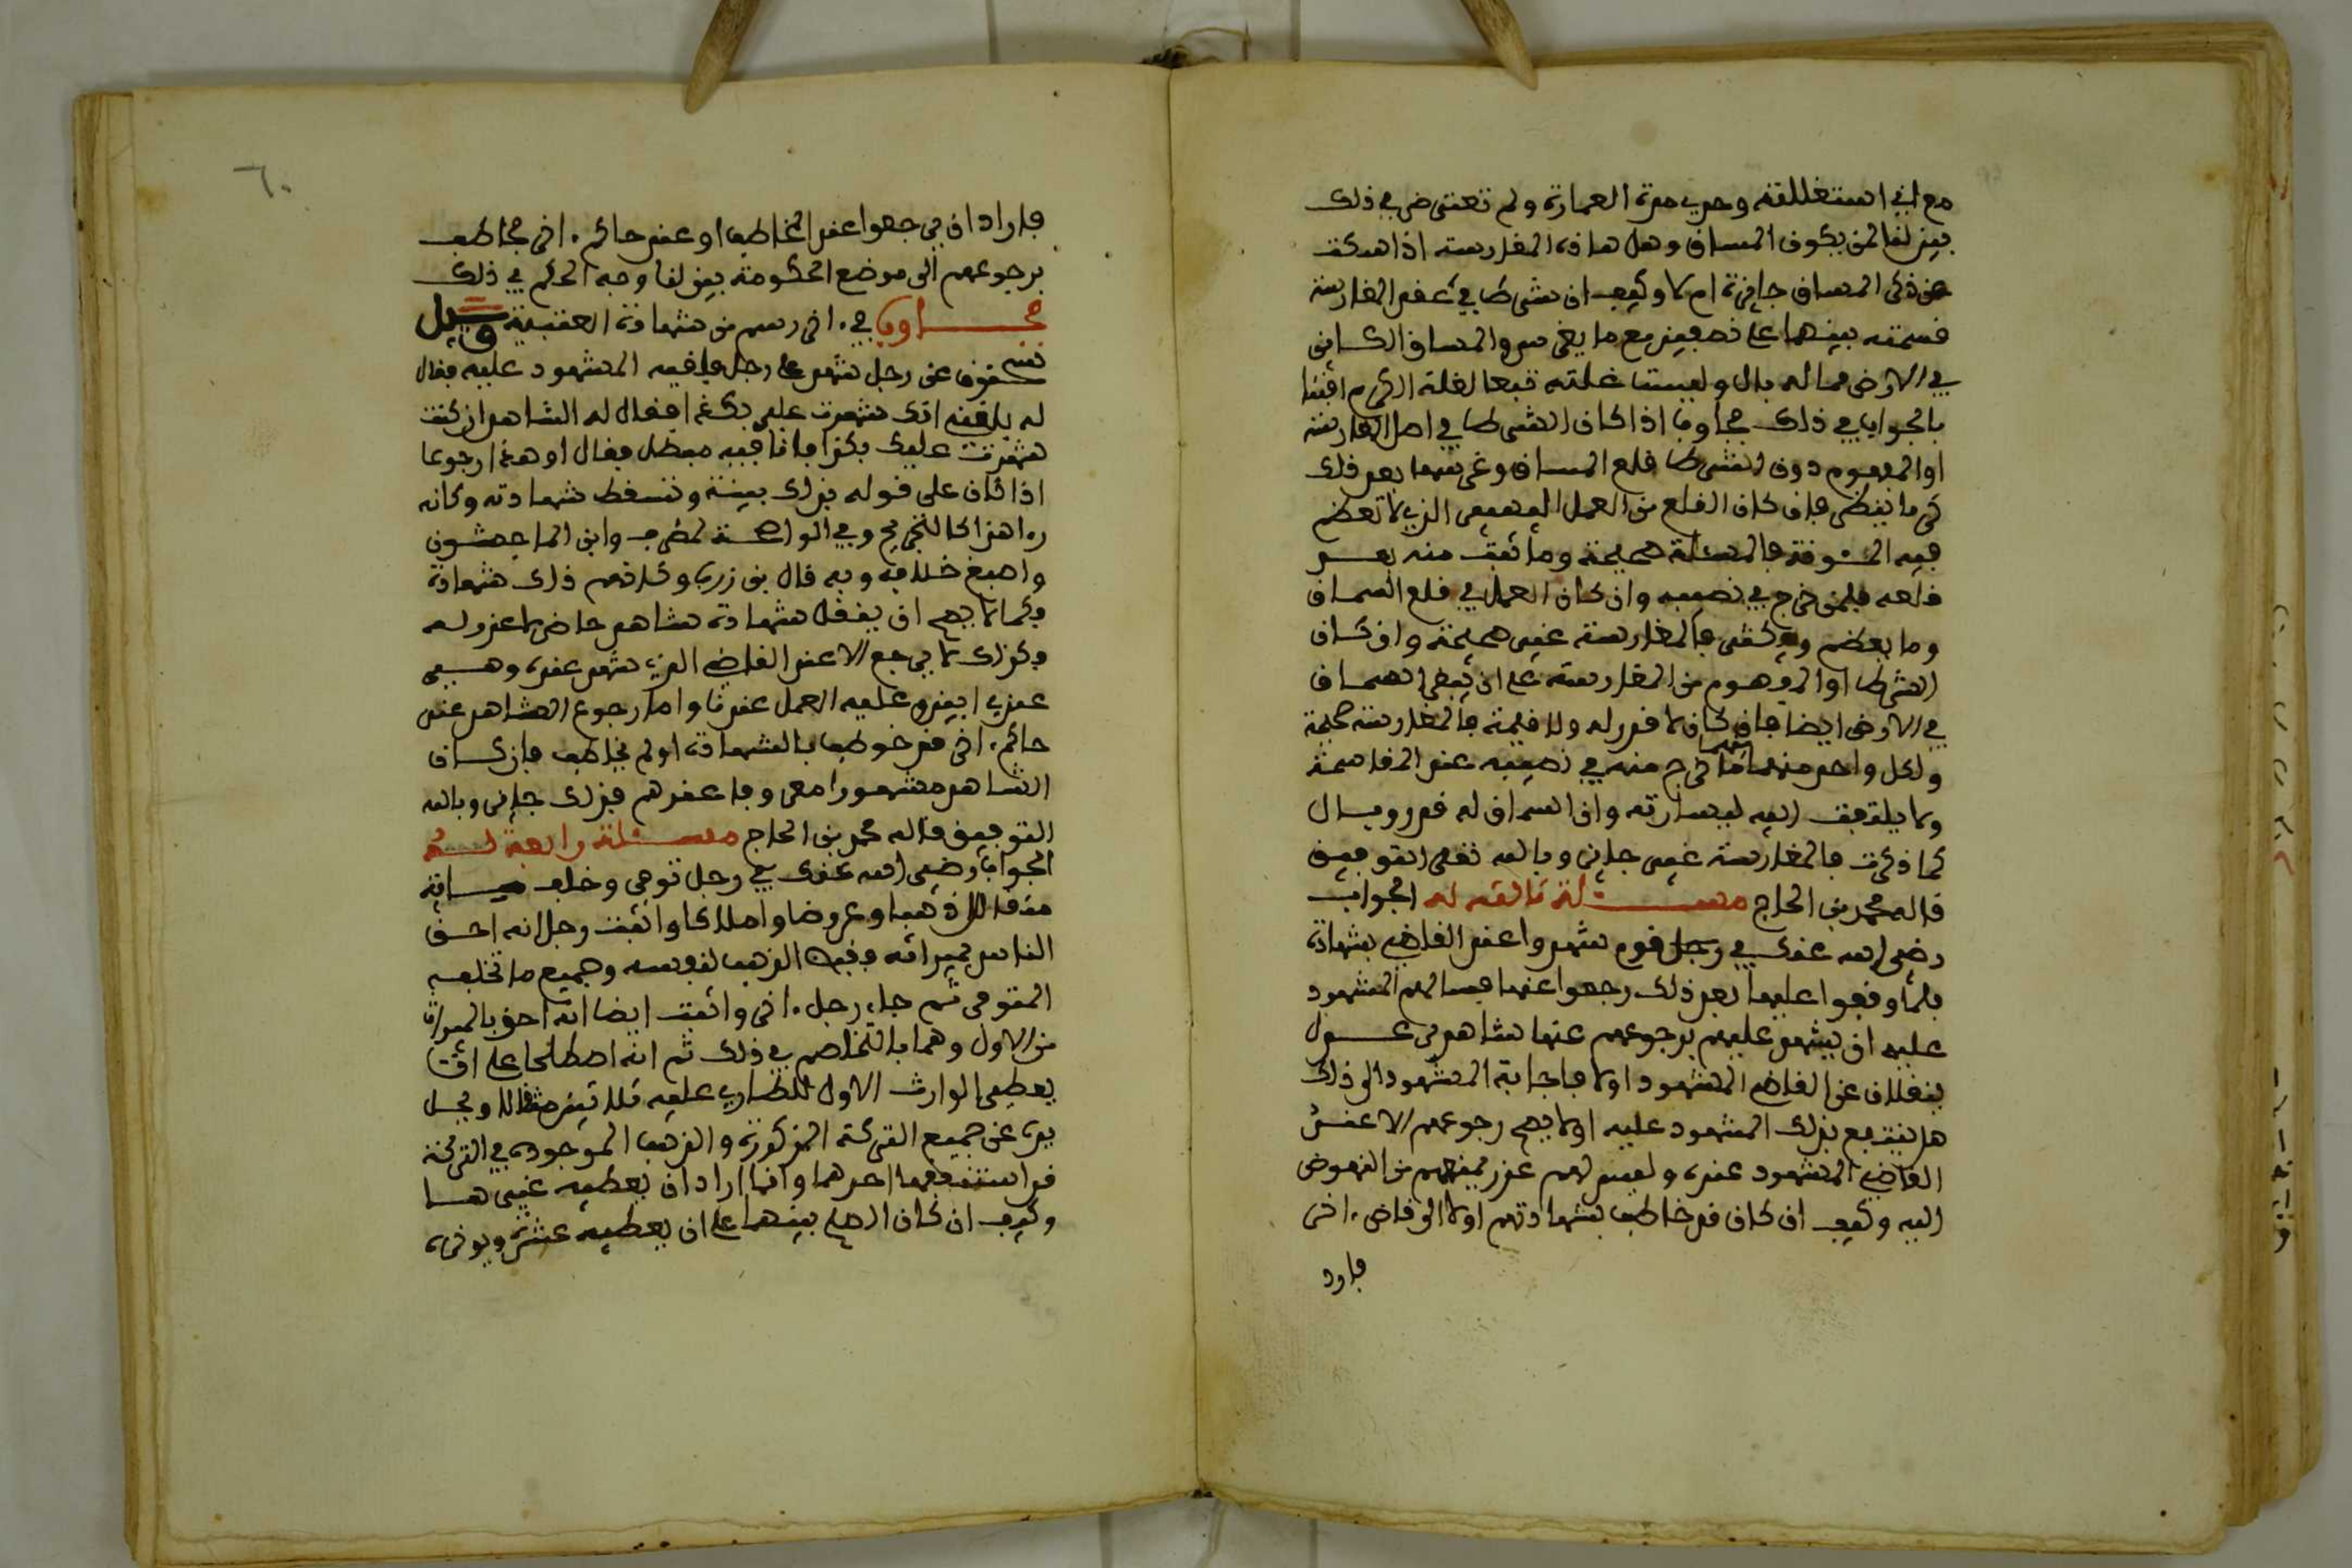 مع اني استغللته وحدي مدة العمارة ولم تعترض في ذلك
بين لنا لمن يكون المساق وهل هاذه المغارسة اذا سكت
عن ذكر المساق جائزة ام لا وكيف ان شرطا في عقد المغارسة
قسمته بينهما على نصفين مع ما يغرس والمساق الكائن
في الارض مما له بال وليست غلته تبعا لغلة الكرم افتنا
بالجواب في ذلك مجاوبا اذا كان الشرط في اصل المغارسة
او المفهوم دون الشرط قلع المساق وغرسها بعد ذلك
كرما نظر فإن كان القلع من العمل اليسير الذي لا تعظم
فيه المئونة فالمسئلة صحيحة وما ثبت منه بعد
قلعه فلمن خرج في نصيبه وان كان العمل في قلع السماق
وما يعظم ويكثر فالمغارسة غير صحيحة وان كان
الشرط او المفهوم من المغارسة على ان يبقى السماق
في الارض ايضا فإن كان لا قدر له ولا قيمة فالمغارسة صحيحة
ولكل واحد منهما ما خرج منه في نصيبه عند المقاسمة
ولا يلتفت اليه ليسارته وان السماق له قدر وبال
كما ذكرت فالمغارسة غير جائزة وبالله تعلى التوفيق
قاله محمد بن الحاج مسئلة ثالثة له الجواب
رضي الله عنك في رجل قوم شهدوا عند القاضي بشهادة
فلما وقفوا عليها بعد ذلك رجعوا عنها فسالهم المشهود
عليه ان يشهد عليهم برجوعهم عنها شاهدي عدول
ينقلان عن القاضي المشهود اولا فاجابة المشهود الى ذلك
هل ينتفع بذلك المشهود عليه او لا يصح رجوعهم الا عند
القاضي المشهود عنده وليس لهم عذر يمنعهم من النهوض
اليه وكيف ان كان قد خاطب بشهادتهم اولا الى قاض اخر
فاراد
٦٠
فاراد ان يرجعوا عند المخاطب او عند حاكم اخر مخاطب
برجوعهم الى موضع الحكومة بين لنا وجه الحكم في ذلك
مجاوبا في اخر رسم من شهادة العتبية وسيل
سحنون عن رجل شهد على رجل فلقيه المشهود عليه فقال
له بلغني انك شهدت علي بكذا فقال له الشاهد ان كنت
شهدت عليك بكذا فانا فيه مبطل فقال او هذا رجوعا
اذا كان على قوله بذلك بينة وتسقط شهادته وكانه
راه هذا كالتجريح وفي الواضحة لمطرف وابن الماجشون
واصبغ خلافه وبه قال بن زرب وكانهم ذلك شهادة
فكما لا يصح ان ينقل شهادة شاهد حاضر لا عذر له
فكذلك لا يرجع الا عند القاضي الذي شهد عنده وهو
عندي ابين وعليه العمل عندنا واما رجوع الشاهد عند
حاكم اخر قد خوطب بالشهادة او لم يخاطب فان كان
الشاهد مشهورا معروفا عندهم فذلك جائز وبالله
التوفيق قاله محمد بن الحاج مسئلة رابعة له
الجواب رضي الله عنك في رجل توفي وخلف مائة
مثقال ذهبا وعروضا واملاكا واثبت رجل انه احق
الناس بميراثه وقبض الذهب لنفسه وجميع ما تخلفه
المتوفى ثم جاء رجل اخر واثبت ايضا انه احق بالميراث
من الاول وهما بالتخاصم في ذلك ثم انه اصطلحا على ان
يعطي الوارث الاول للطاري عليه ثلاثين مثقالا ويحل
يده عن جميع التركة المذكورة والذهب الموجودة في التركة
قد استنفقها احدهما وانما اراد ان يعطيه غيرها
وكيف ان كان الصلح بينهما على ان يعطيه عشرة ويوخره